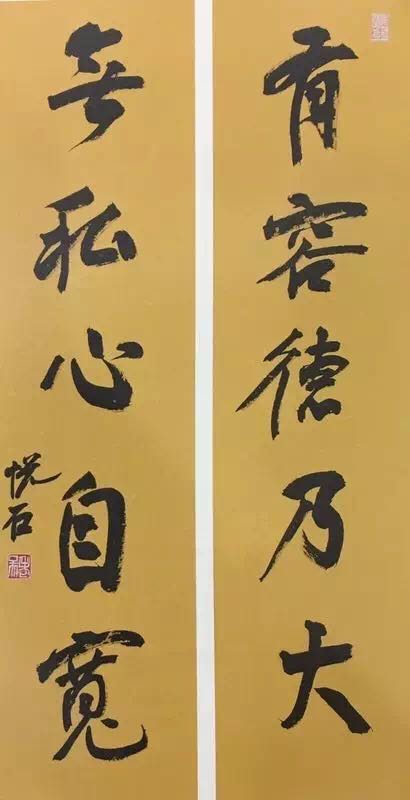 有容德乃大
無私心自寬
悦石